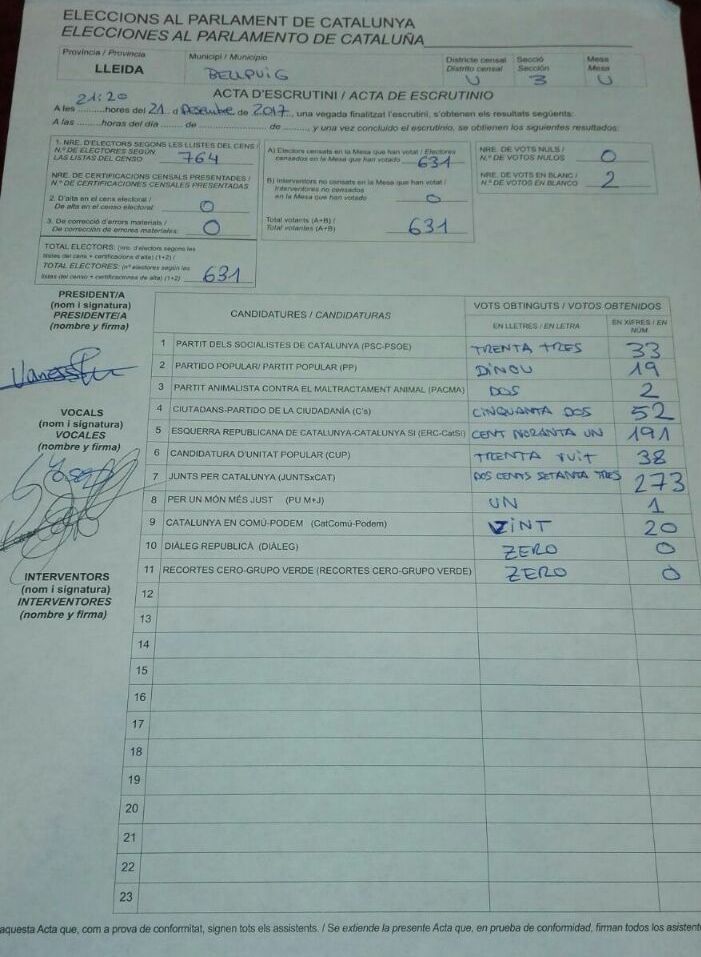 ELECCIONS AL PARLAMENT DE CATALUNYA
ELECCIONES AL PARLAMENTO DE CATALUÑA
Província / Provincia
LLEIDA
Municipi / Municipio
BELLPUIG
Districte censal
Distrito censal
U
Secció
Sección
3
Mesa
Mesa
U
ACTA D'ESCRUTINI / ACTA DE ESCRUTINIO
21:20
A les ..........hores del 21 d Desembre de 2017, una vegada finalitzat l'escrutini, s'obtenen els resultats següents:
A las ........horas del día ....... de ........................ de ......., y una vez concluido el escrutinio, se obtienen los siguientes resultados:
1. NRE. D'ELECTORS SEGONS LES LLISTES DEL CENS /
N.º DE ELECTORES SEGÚN
LAS LISTAS DEL CENSO 764
NRE. DE CERTIFICACIONS CENSALS PRESENTADES /
N.º DE CERTIFICACIONES CENSALES PRESENTADAS
2. D'alta en el cens electoral /
De alta en el censo electoral 0
3. De correcció d'errors materials /
De corrección de errores materiales 0
TOTAL ELECTORS: (nre. d'electors segons les
llistes del cens + certificacions d'alta) (1+2) /
TOTAL ELECTORES: (nº electores según las
listas del censo + certificaciones de alta) (1+2) 631
A) Electors censats en la Mesa que han votat / Electores
censados en la Mesa que han votado 631
B) Interventors no censats en la Mesa que han votat /
Interventores no censados
en la Mesa que han votado 0
Total votants (A+B) /
Total votantes (A+B) 631
NRE. DE VOTS NULS /
N.º DE VOTOS NULOS 0
NRE. DE VOTS EN BLANC /
N.º DE VOTOS EN BLANCO 2
PRESIDENT/A
(nom i signatura)
PRESIDENTE/A
(nombre y firma)
VOCALS
(nom i signatura)
VOCALES
(nombre y firma)
INTERVENTORS
(nom i signatura)
INTERVENTORES
(nombre y firma)
CANDIDATURES / CANDIDATURAS
VOTS OBTINGUTS / VOTOS OBTENIDOS
EN LLETRES / EN LETRA
EN XIFRES / EN
NÚM.
1 PARTIT DELS SOCIALISTES DE CATALUNYA (PSC-PSOE) TRENTA TRES 33
2 PARTIDO POPULAR/ PARTIT POPULAR (PP) DINOU 19
3 PARTIT ANIMALISTA CONTRA EL MALTRACTAMENT ANIMAL (PACMA) DOS 2
4 CIUTADANS-PARTIDO DE LA CIUDADANÍA (C's) CINQUANTA DOS 52
5 ESQUERRA REPUBLICANA DE CATALUNYA-CATALUNYA SÍ (ERC-CatSí) CENT NORANTA UN 191
6 CANDIDATURA D'UNITAT POPULAR (CUP) TRENTA VUIT 38
7 JUNTS PER CATALUNYA (JUNTSxCAT) DOS CENTS SETANTA TRES 273
8 PER UN MÓN MÉS JUST (PU M+J) UN 1
9 CATALUNYA EN COMÚ-PODEM (CatComú-Podem) VINT 20
10 DIÀLEG REPUBLICÀ (DIÀLEG) ZERO 0
11 RECORTES CERO-GRUPO VERDE (RECORTES CERO-GRUPO VERDE) ZERO 0
12
13
14
15
16
17
18
19
20
21
22
23
aquesta Acta que, com a prova de conformitat, signen tots els assistents. / Se extiende la presente Acta que, en prueba de conformidad, firman todos los asistent